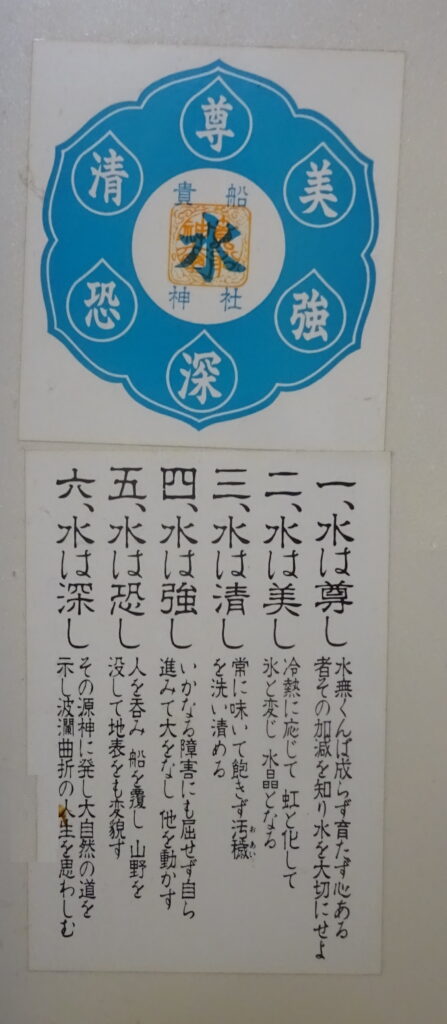 尊
美
強
深
恐
清
貴船
水
神社
一、水は尊し
水無くんば成らず育たず心ある
者その加減を知り水を大切にせよ
二、水は美し
冷熱に応じて 虹と化して
氷と変じ 水晶となる
三、水は清し
常に味いて飽きず汚穢
おあい
を洗い清める
四、水は強し
いかなる障害にも屈せず自ら
進みて大をなし 他を動かす
五、水は恐し
人を呑み 船を覆し 山野を
没して地表をも変貌す
六、水は深し
その源神に発し大自然の道を
示し波瀾曲折の人生を思わしむ